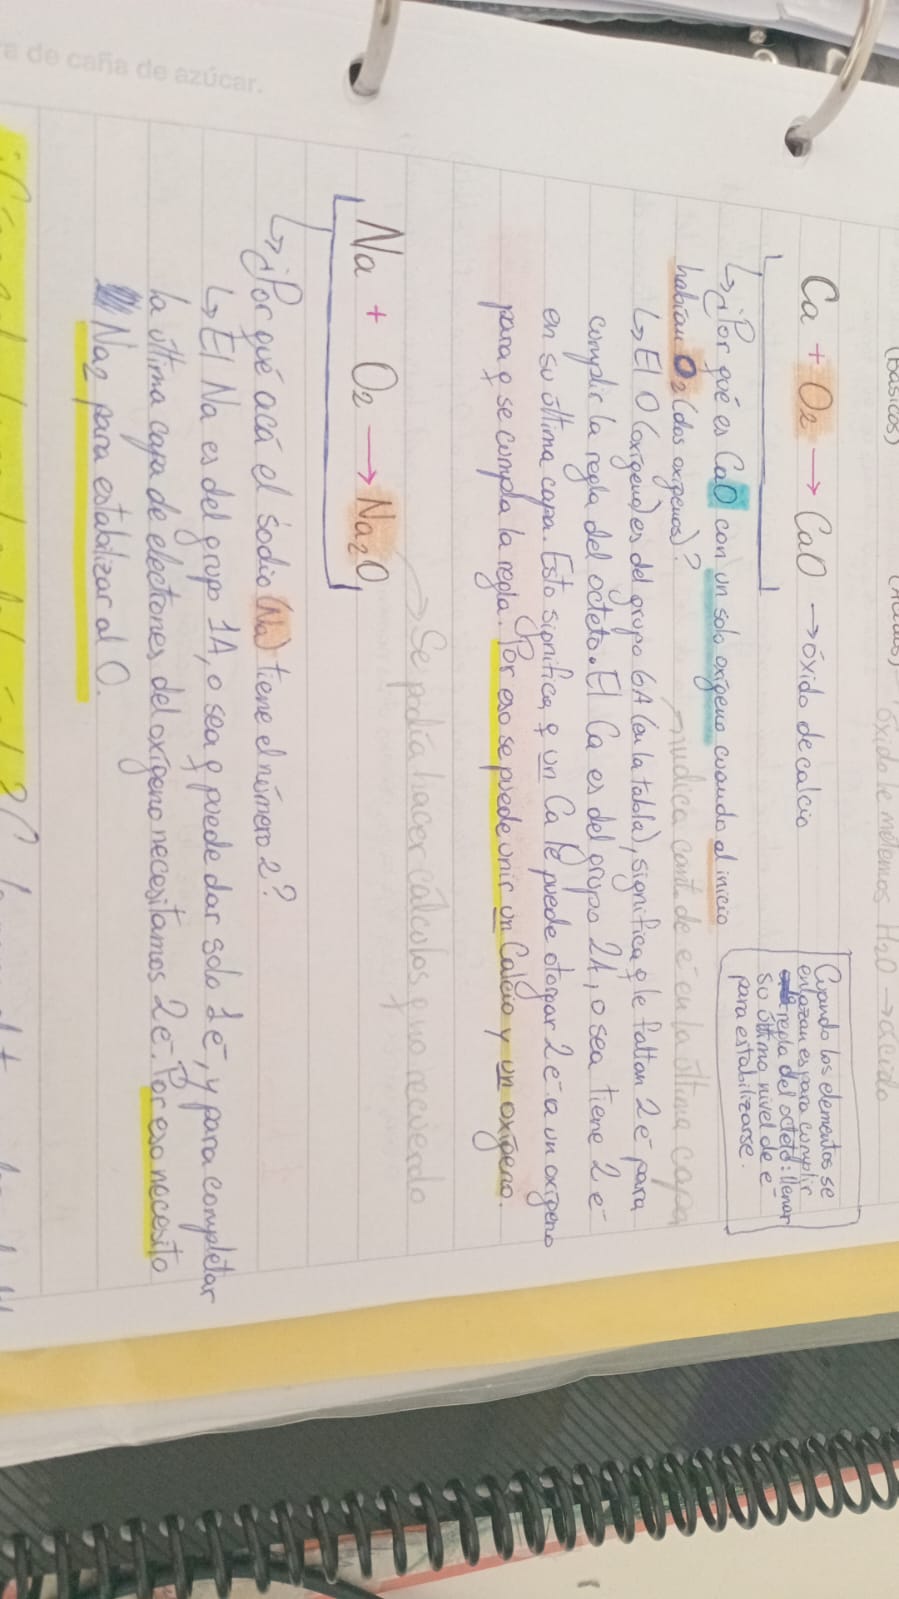 (Básicos)
óxido le metemos H2O → ácido
Ca + O2 → CaO → óxido de calcio
Cuando los elementos se
enlazan es para cumplir
la regla del octeto: llenar
su último nivel de e-
para estabilizarse.
↳ ¿Por qué es CaO con un sólo oxígeno cuando al inicio
habían O2 (dos oxígenos)?
→ indica cant de e- en la última capa
↳ El O (oxígeno) es del grupo 6A (en la tabla), significa q le faltan 2e- para
cumplir la regla del octeto. El Ca es del grupo 2A, o sea tiene 2e-
en su última capa. Esto significa q un Ca le puede otorgar 2e- a un oxígeno
para q se cumpla la regla. Por eso se puede unir un Calcio y un oxígeno.
→ Se podía hacer cálculos q no recuerdo
Na + O2 → Na2O
↳ ¿Por qué acá el sodio (Na) tiene el número 2?
↳ El Na es del grupo 1A, o sea q puede dar solo 1e-, y para completar
la última capa de electrones del oxígeno necesitamos 2e-. Por eso necesito
Na2 para estabilizar al O.
ra de caña de azúcar.